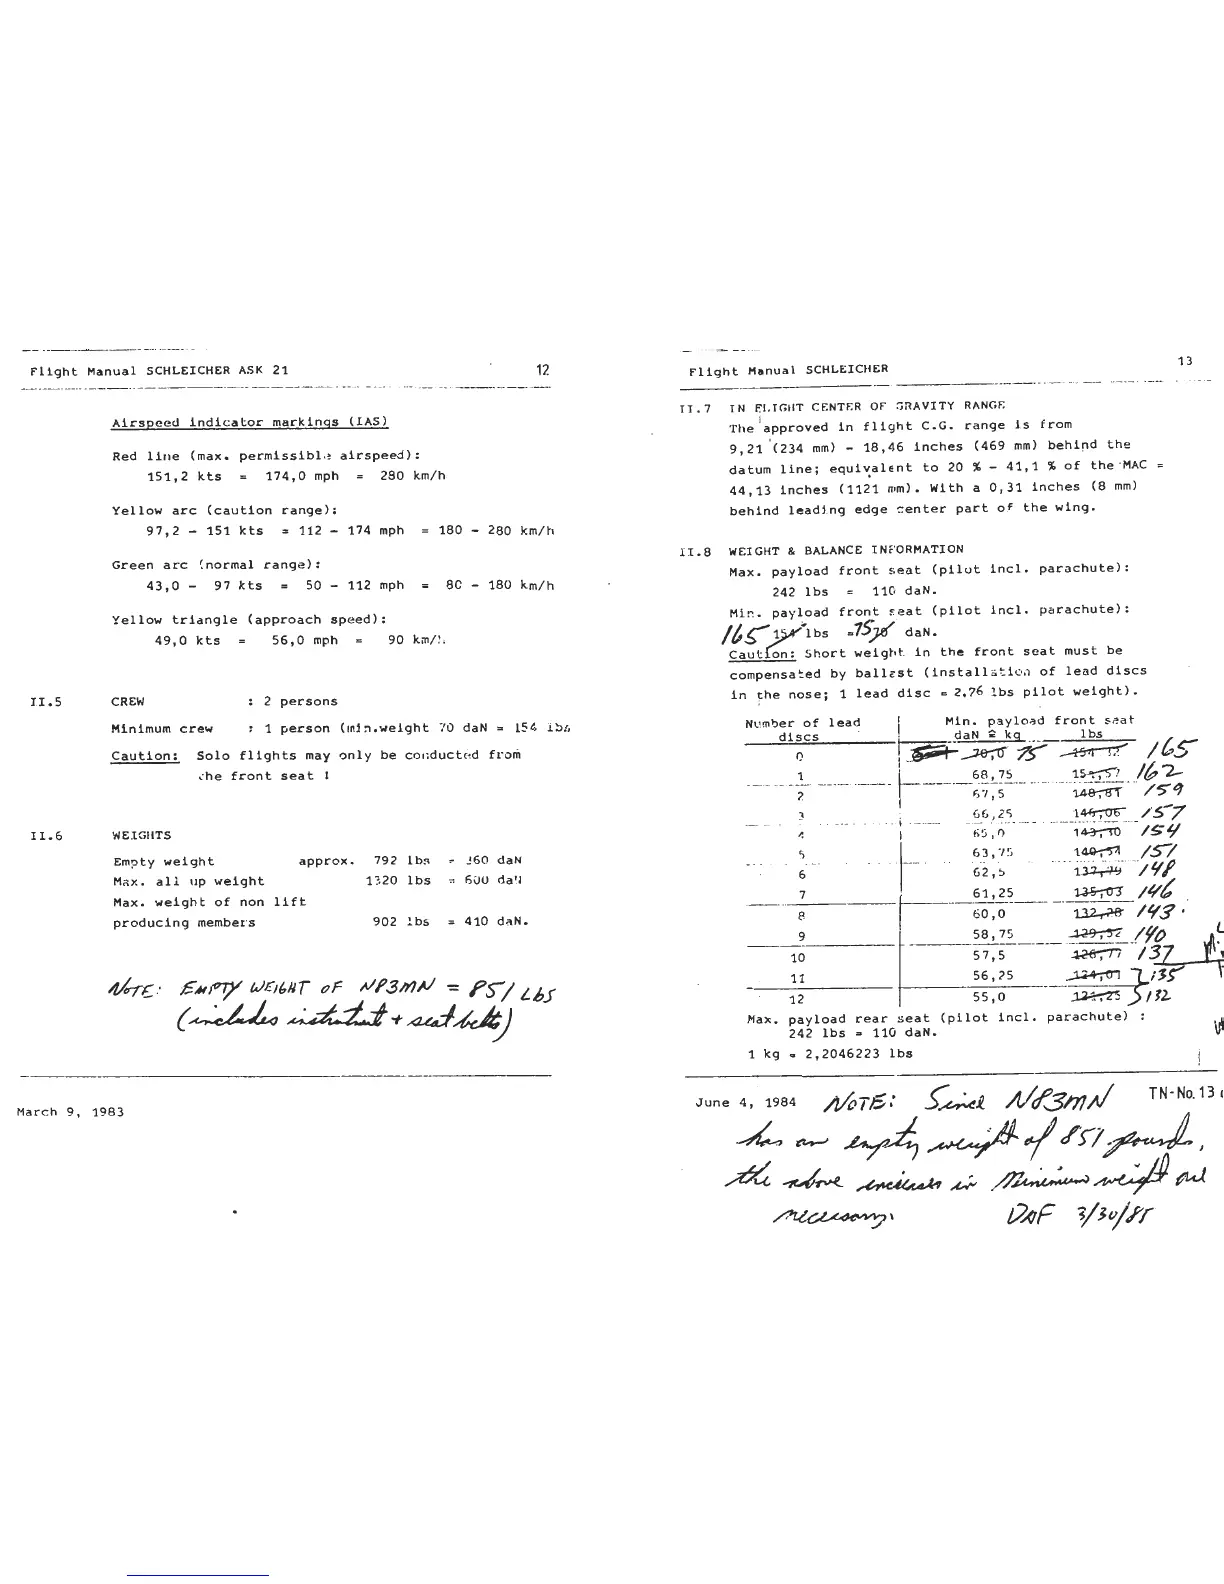 Flight Manual SCHLEICHER ASK 21 12
Airspeed indicator markings (IAS)
Red line (max. permissible airspeed):
151,2 kts = 174,0 mph = 280 km/h
Yellow arc (caution range):
97,2 - 151 kts = 112 - 174 mph = 180 - 280 km/h
Green arc (normal range):
43,0 - 97 kts = 50 - 112 mph = 80 - 180 km/h
Yellow triangle (approach speed):
49,0 kts = 56,0 mph = 90 km/h
II.5 CREW : 2 persons
Minimum crew : 1 person (min.weight 70 daN = 154 lbs
Caution: Solo flights may only be conducted from
the front seat !
II.6 WEIGHTS
Empty weight approx. 792 lbs = 360 daN
Max. all up weight 1320 lbs = 600 daN
Max. weight of non lift
producing members 902 lbs = 410 daN.
NOTE: EMPTY WEIGHT OF N83MN = 851 Lbs
(includes instrument + seat belts)
March 9, 1983
Flight Manual SCHLEICHER 13
II.7 IN FLIGHT CENTER OF GRAVITY RANGE
The approved in flight C.G. range is from
9,21 (234 mm) - 18,46 inches (469 mm) behind the
datum line; equivalent to 20 % - 41,1 % of the MAC =
44,13 inches (1121 mm). With a 0,31 inches (8 mm)
behind leading edge center part of the wing.
II.8 WEIGHT & BALANCE INFORMATION
Max. payload front seat (pilot incl. parachute):
242 lbs = 110 daN.
Min. payload front seat (pilot incl. parachute):
165 154 lbs = 75 70 daN.
Caution: Short weight in the front seat must be
compensated by ballast (installation of lead discs
in the nose; 1 lead disc = 2.76 lbs pilot weight).
Number of lead Min. payload front seat
discs daN ≙ kg lbs
0 70,0 75 165
1 68,75 162
2 67,5 148,81 159
3 66,25 146,06 157
4 65,0 143,30 154
5 63,75 140,54 151
6 62,5 137,79 148
7 61,25 135,03 146
8 60,0 132,28 143
9 58,75 129,52 140
10 57,5 126,77 137
11 56,25 124,01 135
12 55,0 121,25 132
Max. payload rear seat (pilot incl. parachute) :
242 lbs = 110 daN.
1 kg = 2,2046223 lbs
June 4, 1984 NOTE: Since N83MN TN-No. 13
has an empty weight of 851 pounds,
the above increases in Minimum weight are
necessary. DAF 3/30/85